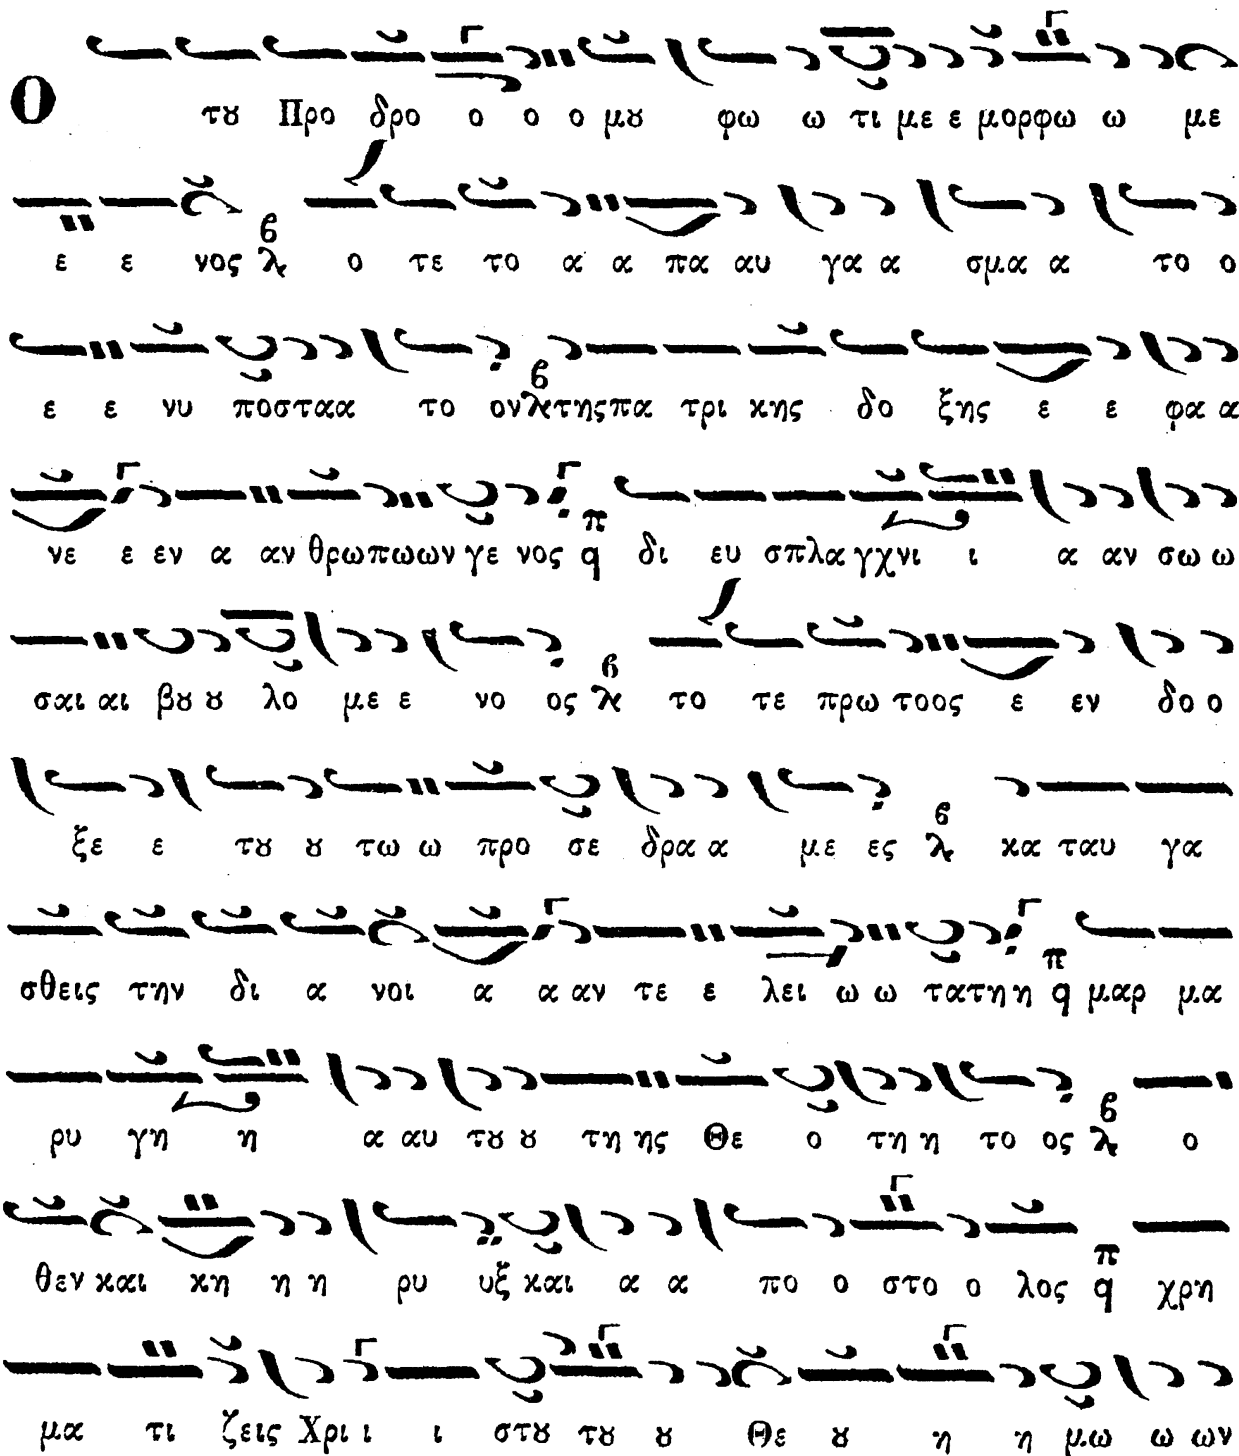 Ο τȣ Προ δρο ο ο ο μȣ φω ω τι με ε μορφω ω με
ε ε νος λ β ο τε το α α πα αυ γα α σμα α το ο
ε ε νυ ποσταα το ον λ β της πα τρι κης δο ξης ε ε φα α
νε ε εν α αν θρωπωων γε νος q π δι ευ σπλα γχνι ι α αν σω ω
σαι αι βȣ ȣ λο με ε νο ος λ β το τε πρω τοος ε εν δο ο
ξε ε τȣ ȣ τω ω προ σε δρα α με ες λ β κα ταυ γα
σθεις την δι α νοι α α αν τε ε λει ω ω τατη η q π μαρ μα
ρυ γη η α αυ τȣ ȣ τη ης Θε ο τη η το ος λ β ο
θεν και κη η η ρυ υξ και α α πο ο στο ο λος q π χρη
μα τι ζεις Χρι ι ι στȣ τȣ ȣ Θε ȣ η η μω ω ων